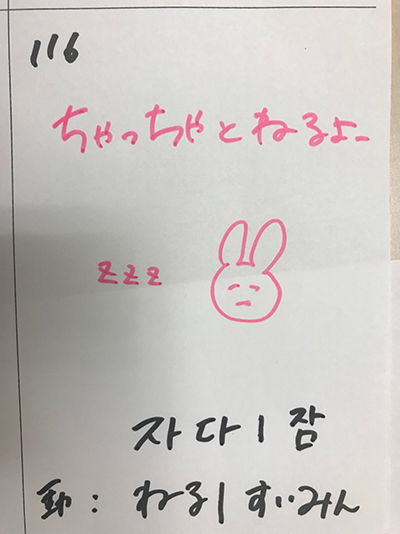 116
ちゃっちゃとねるよー
zzz
자다 | 잠
動 : ねる | すいみん